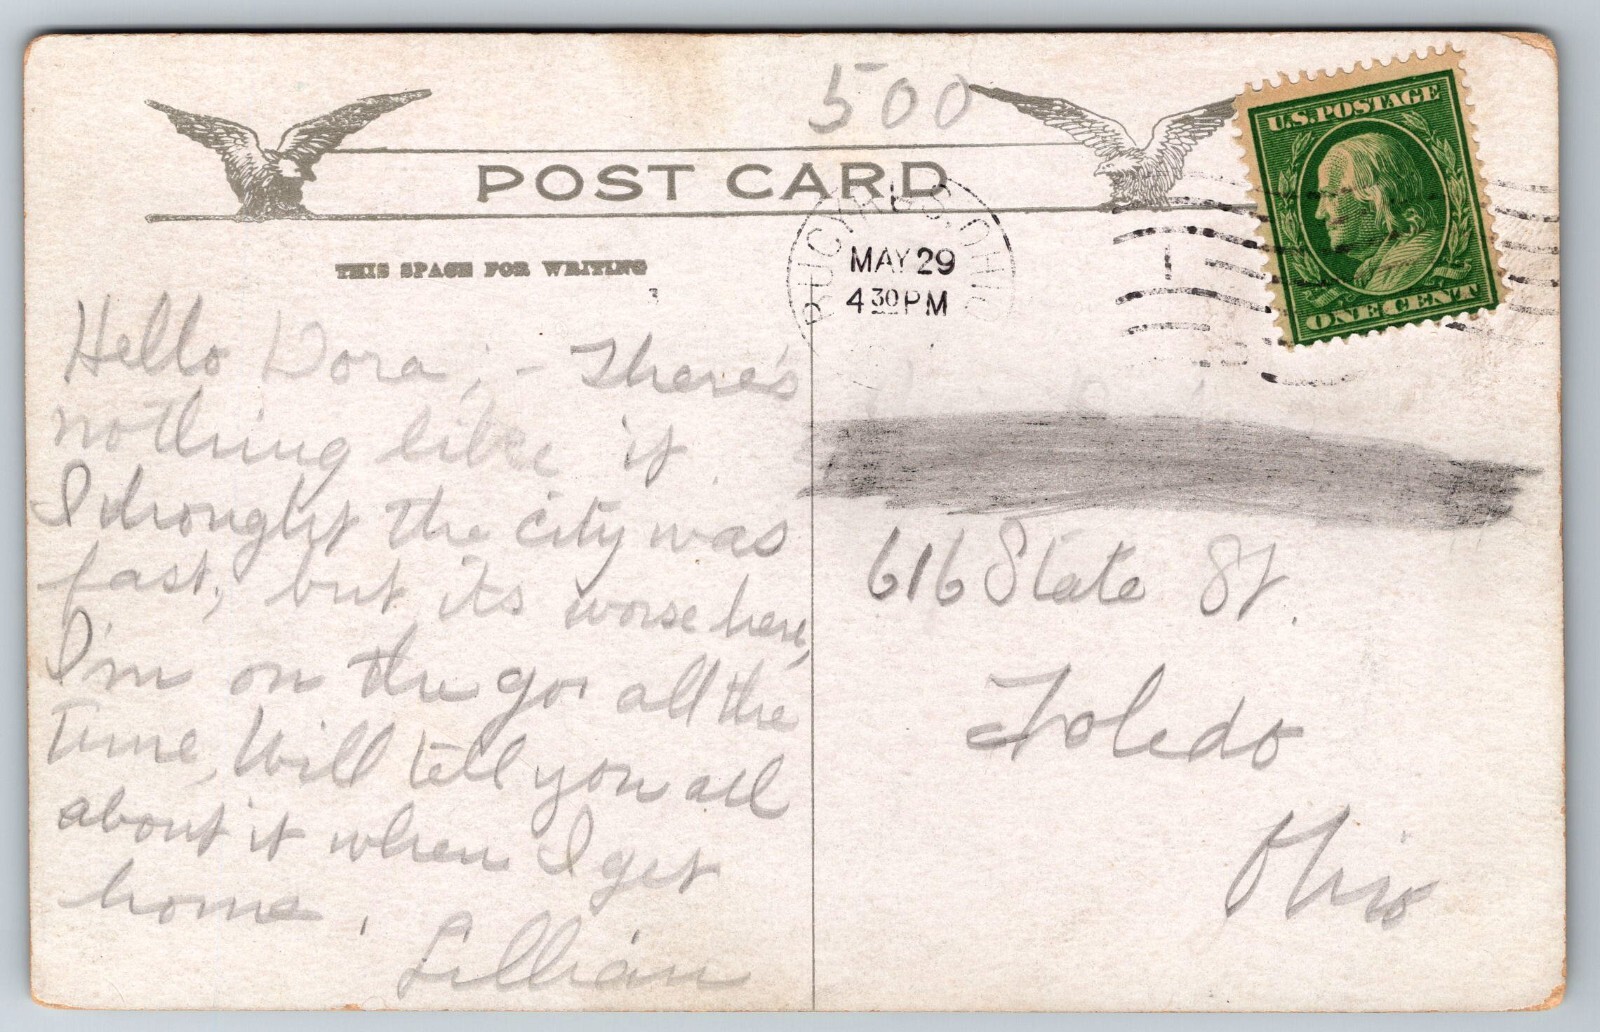 500
POST CARD
U.S.POSTAGE
ONE CENT
BUCYRUS, OHIO
MAY 29
4 30 PM
THIS SPACE FOR WRITING
Hello Dora; - There's
nothing like it
I thought the city was
fast, but its worse here,
I'm on the go, all the
time, Will tell you all
about it when I get
home.
Lillian
616 State St.
Toledo
Ohio